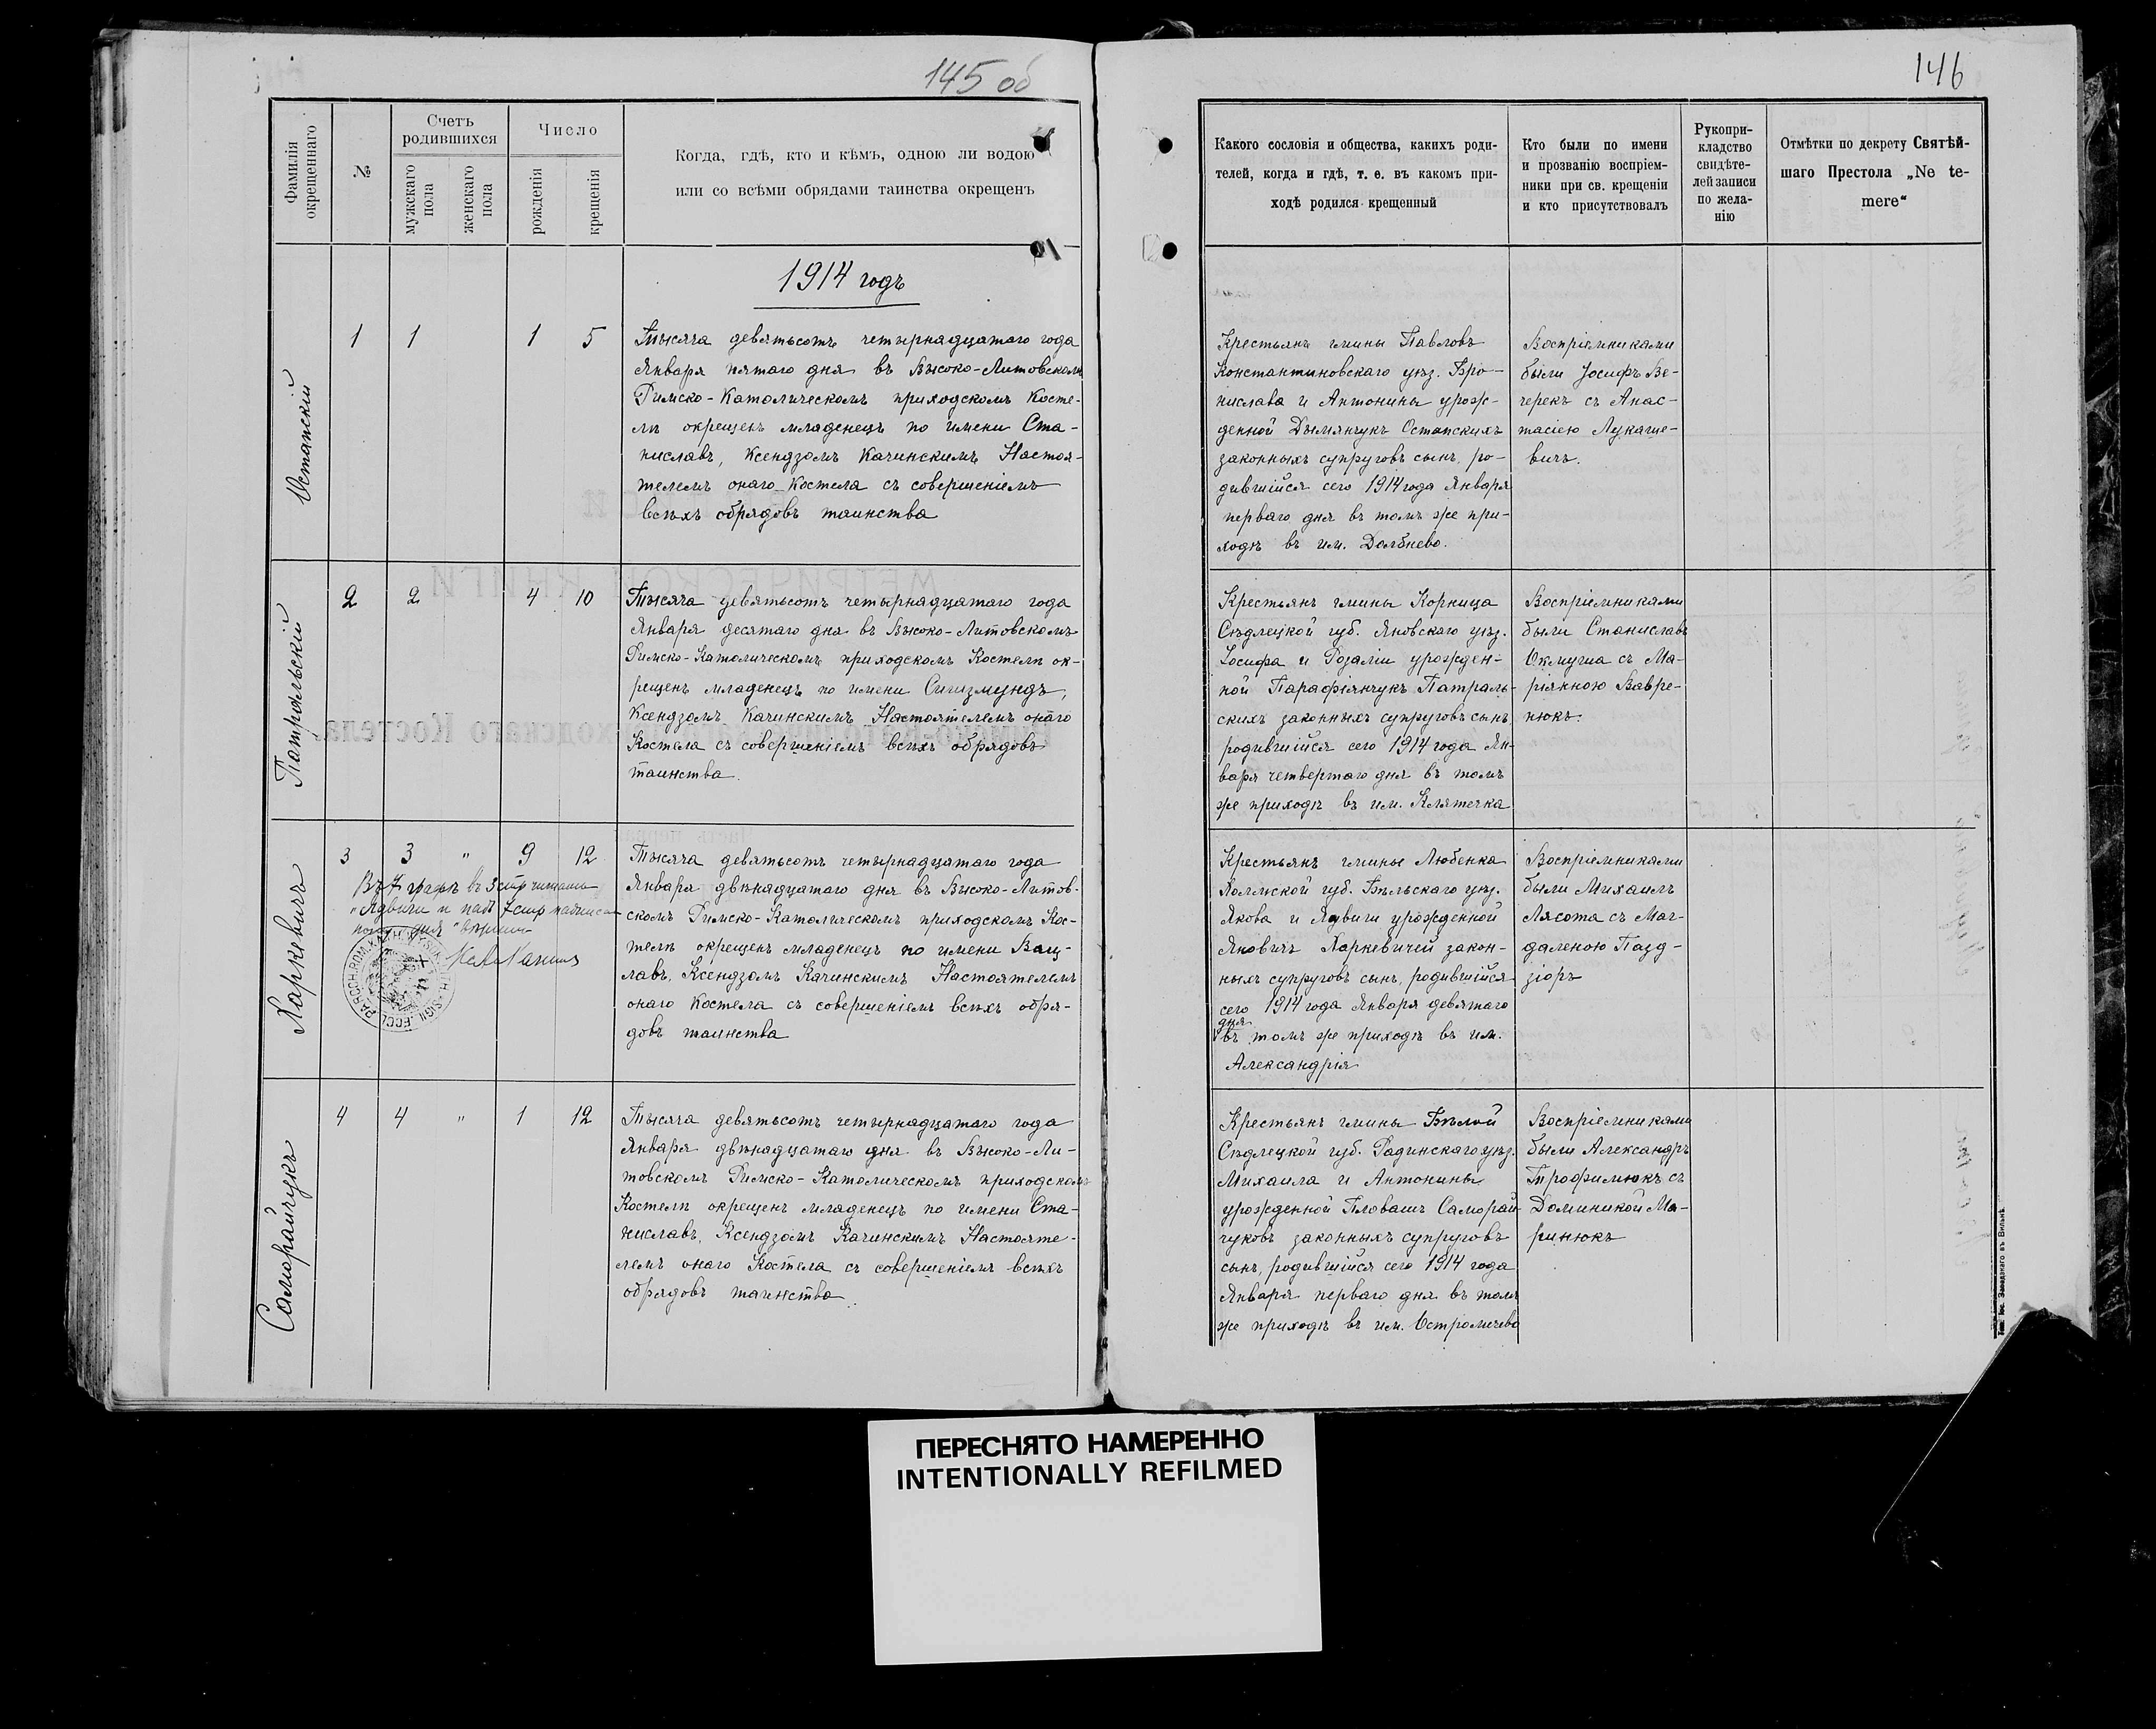 145 об
Фамилія окрещеннаго
№
Счетъ родившихся
мужскаго пола
женскаго пола
Число
рожденія
крещенія
Когда, гдѣ, кто и кѣмъ, одною ли водою
или со всѣми обрядами таинства окрещенъ
1914 годъ
Остапскій
1 1 1 5
Тысяча девятьсотъ четырнадцатаго года
Января пятаго дня въ Высоко-Литовскомъ
Римско-Католическомъ приходскомъ Косте-
лѣ окрещенъ младенецъ по имени Ста-
ниславъ, Ксендзомъ Качинскимъ Настоя-
телемъ онаго Костела съ совершеніемъ
всѣхъ обрядовъ таинства
Патральскій
2 2 4 10
Тысяча девятьсотъ четырнадцатаго года
Января десятаго дня въ Высоко-Литовскомъ
Римско-Католическомъ приходскомъ Костелѣ ок-
рещенъ младенецъ по имени Сигизмундъ,
Ксендзомъ Качинскимъ Настоятелемъ онаго
Костела съ совершеніемъ всѣхъ обрядовъ
таинства.
Харкевичъ
3 3 " 9 12
Въ 7 графѣ въ 3 стр читать
"Ядвиги" и надъ 7 стр
"дня" вѣрить
Тысяча девятьсотъ четырнадцатаго года
Января двѣнадцатаго дня въ Высоко-Литов-
скомъ Римско-Католическомъ приходскомъ Кос-
телѣ окрещенъ младенецъ по имени Вац-
лавъ, Ксендзомъ Качинскимъ Настоятелемъ
онаго Костела съ совершеніемъ всѣхъ обря-
довъ таинства
Саморайчукъ
4 4 " 1 12
Тысяча девятьсотъ четырнадцатаго года
Января двѣнадцатаго дня въ Высоко-Ли-
товскомъ Римско-Католическомъ приходскомъ
Костелѣ окрещенъ младенецъ по имени Ста-
ниславъ, Ксендзомъ Качинскимъ Настояте-
лемъ онаго Костела съ совершеніемъ всѣхъ
обрядовъ таинства.
146
Какого сословія и общества, какихъ роди-
телей, когда и гдѣ, т. е. въ какомъ при-
ходѣ родился крещенный
Кто были по имени
и прозванію воспріем-
ники при св. крещеніи
и кто присутствовалъ
Рукопри-
кладство
свидѣте-
лей записи
по жела-
нію
Отмѣтки по декрету Святѣй-
шаго Престола „Ne te-
mere“
Крестьянъ гмины Павловъ
Константиновскаго уѣз. Бро-
нислава и Антонины урож-
денной Дымянчукъ Остапскихъ
законныхъ супруговъ сынъ, ро-
дившійся сего 1914 года Января
перваго дня въ томъ же при-
ходѣ въ им. Долбнево.
Воспріемниками
были Іосифъ Ве-
черекъ съ Анас-
тасіею Лукаше-
вичъ.
Крестьянъ гмины Корница
Сѣдлецкой губ. Яновскаго уѣз.
Іосифа и Розаліи урожден-
ной Парафіянчукъ Патраль-
скихъ законныхъ супруговъ сынъ,
родившійся сего 1914 года Ян-
варя четвертаго дня въ томъ
же приходѣ въ им. Клятечка
Воспріемниками
были Станиславъ
Окмуша съ Ма-
ріянною Вавре-
нюкъ.
Крестьянъ гмины Любенка
Холмской губ. Бѣльскаго уѣз.
Якова и Ядвиги урожденной
Яновичъ Харкевичей закон-
ныхъ супруговъ сынъ, родившійся
сего 1914 года Января девятаго
дня
въ томъ же приходѣ въ им.
Александрія
Воспріемниками
были Михаилъ
Лясота съ Маг-
даленою Пазд-
зіоръ
Крестьянъ гмины Бѣлой
Сѣдлецкой губ. Радинскаго уѣз.
Михаила и Антонины
урожденной Пловашъ Саморай-
чуковъ законныхъ супруговъ
сынъ, родившійся сего 1914 года
Января перваго дня въ томъ
же приходѣ въ им. Остромечево
Воспріемниками
были Александръ
Трофимюкъ съ
Доминикой Ма-
ринюкъ
Тип. Іос. Завадзкаго въ Вильнѣ.
ПЕРЕСНЯТО НАМЕРЕННО
INTENTIONALLY REFILMED